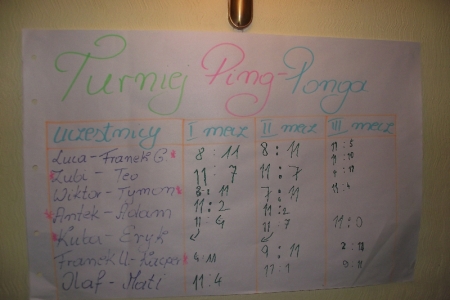 Turniej Ping-Ponga
uczestnicy I mecz II mecz III mecz
Luca - Franek G. 8 : 11 8 : 11 11 : 5
Zuta - Teo 11 : 7 11 : 7
Wiktor - Tymon 8 : 11 7 : 11
Antek - Adam 11 : 2 11 : 2
Kuba - Eryk 11 : 7 11 : 0
Franek U. - Kacper 4 : 11 9 : 11
Olaf - Mati 11 : 4 11 : 1